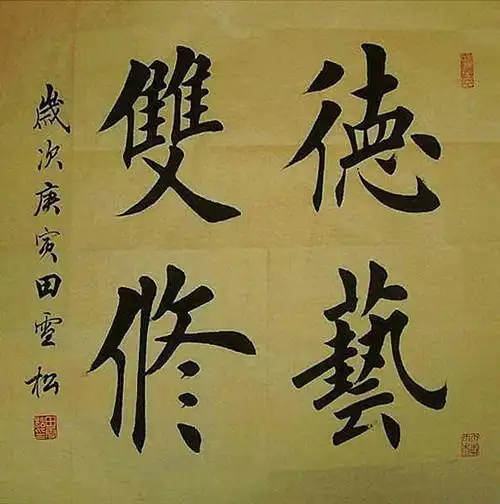 德藝
雙修
歲次庚寅田雪松